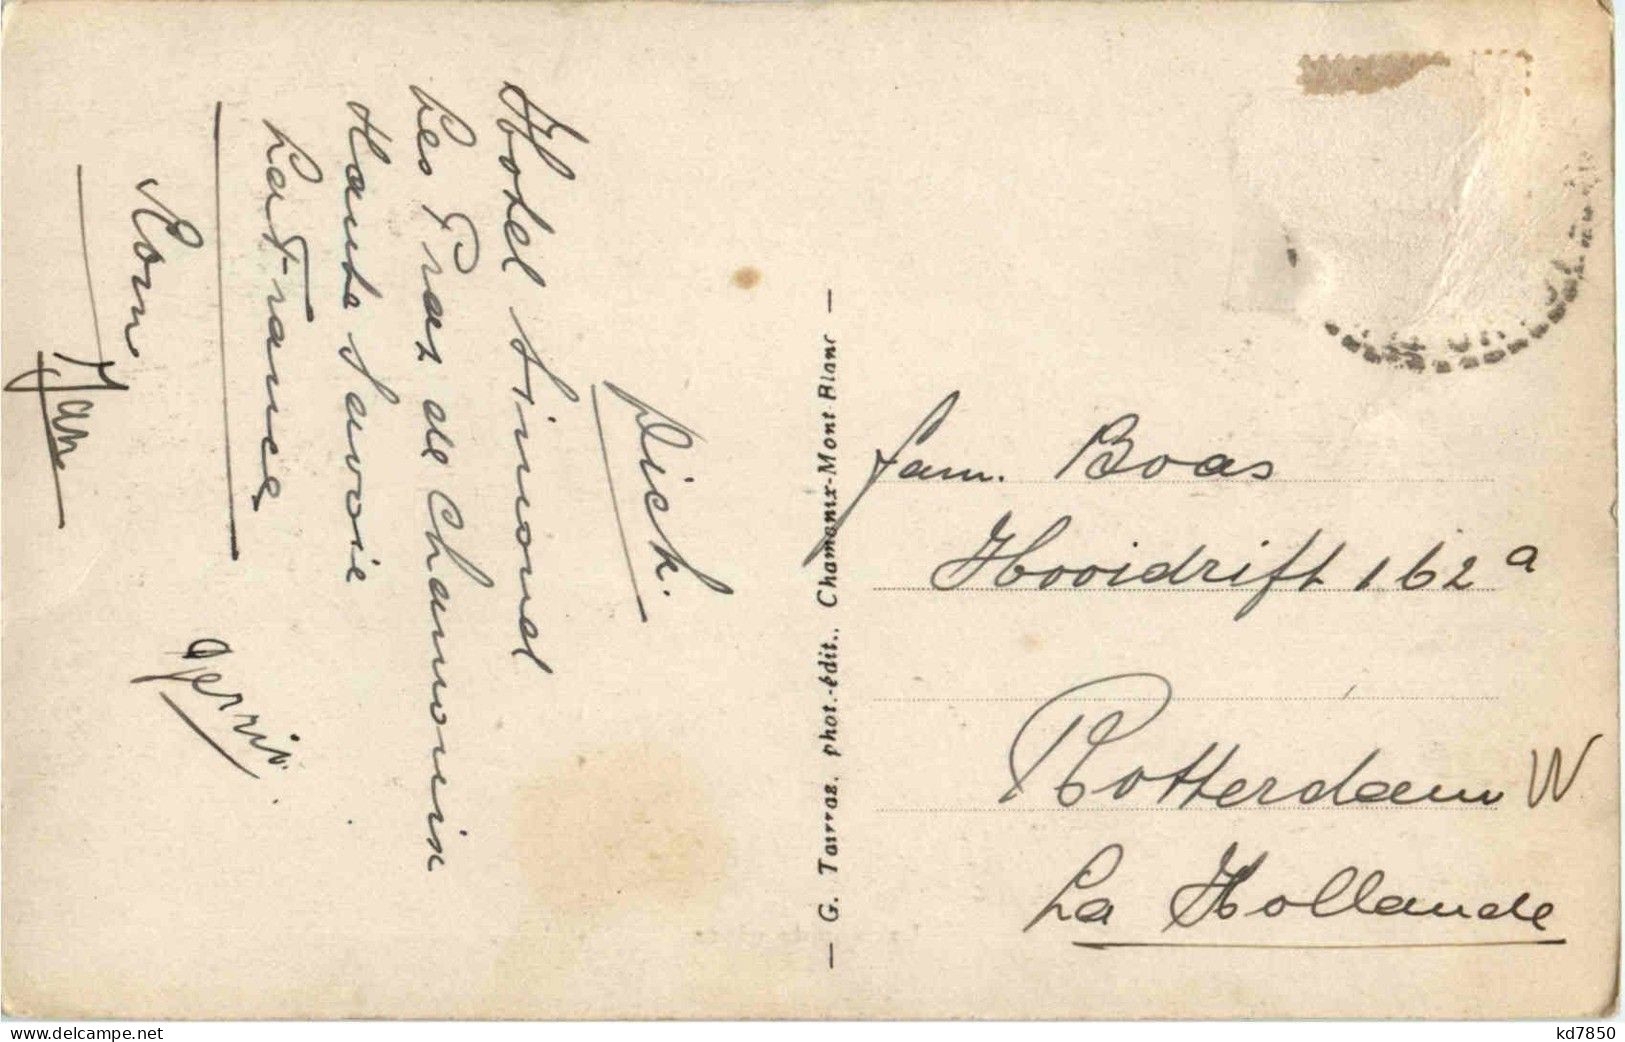 Dick.
Hotel Simond
Les Praz de Chamonix
Haute Savoie
La France
Jan
Gerrit.
— G. Tairraz. phot.-édit., Chamonix-Mont-Blanc —
fam. Boas
Hooidrift 162a
Rotterdam W
La Hollande
delcampe.net
kd7850